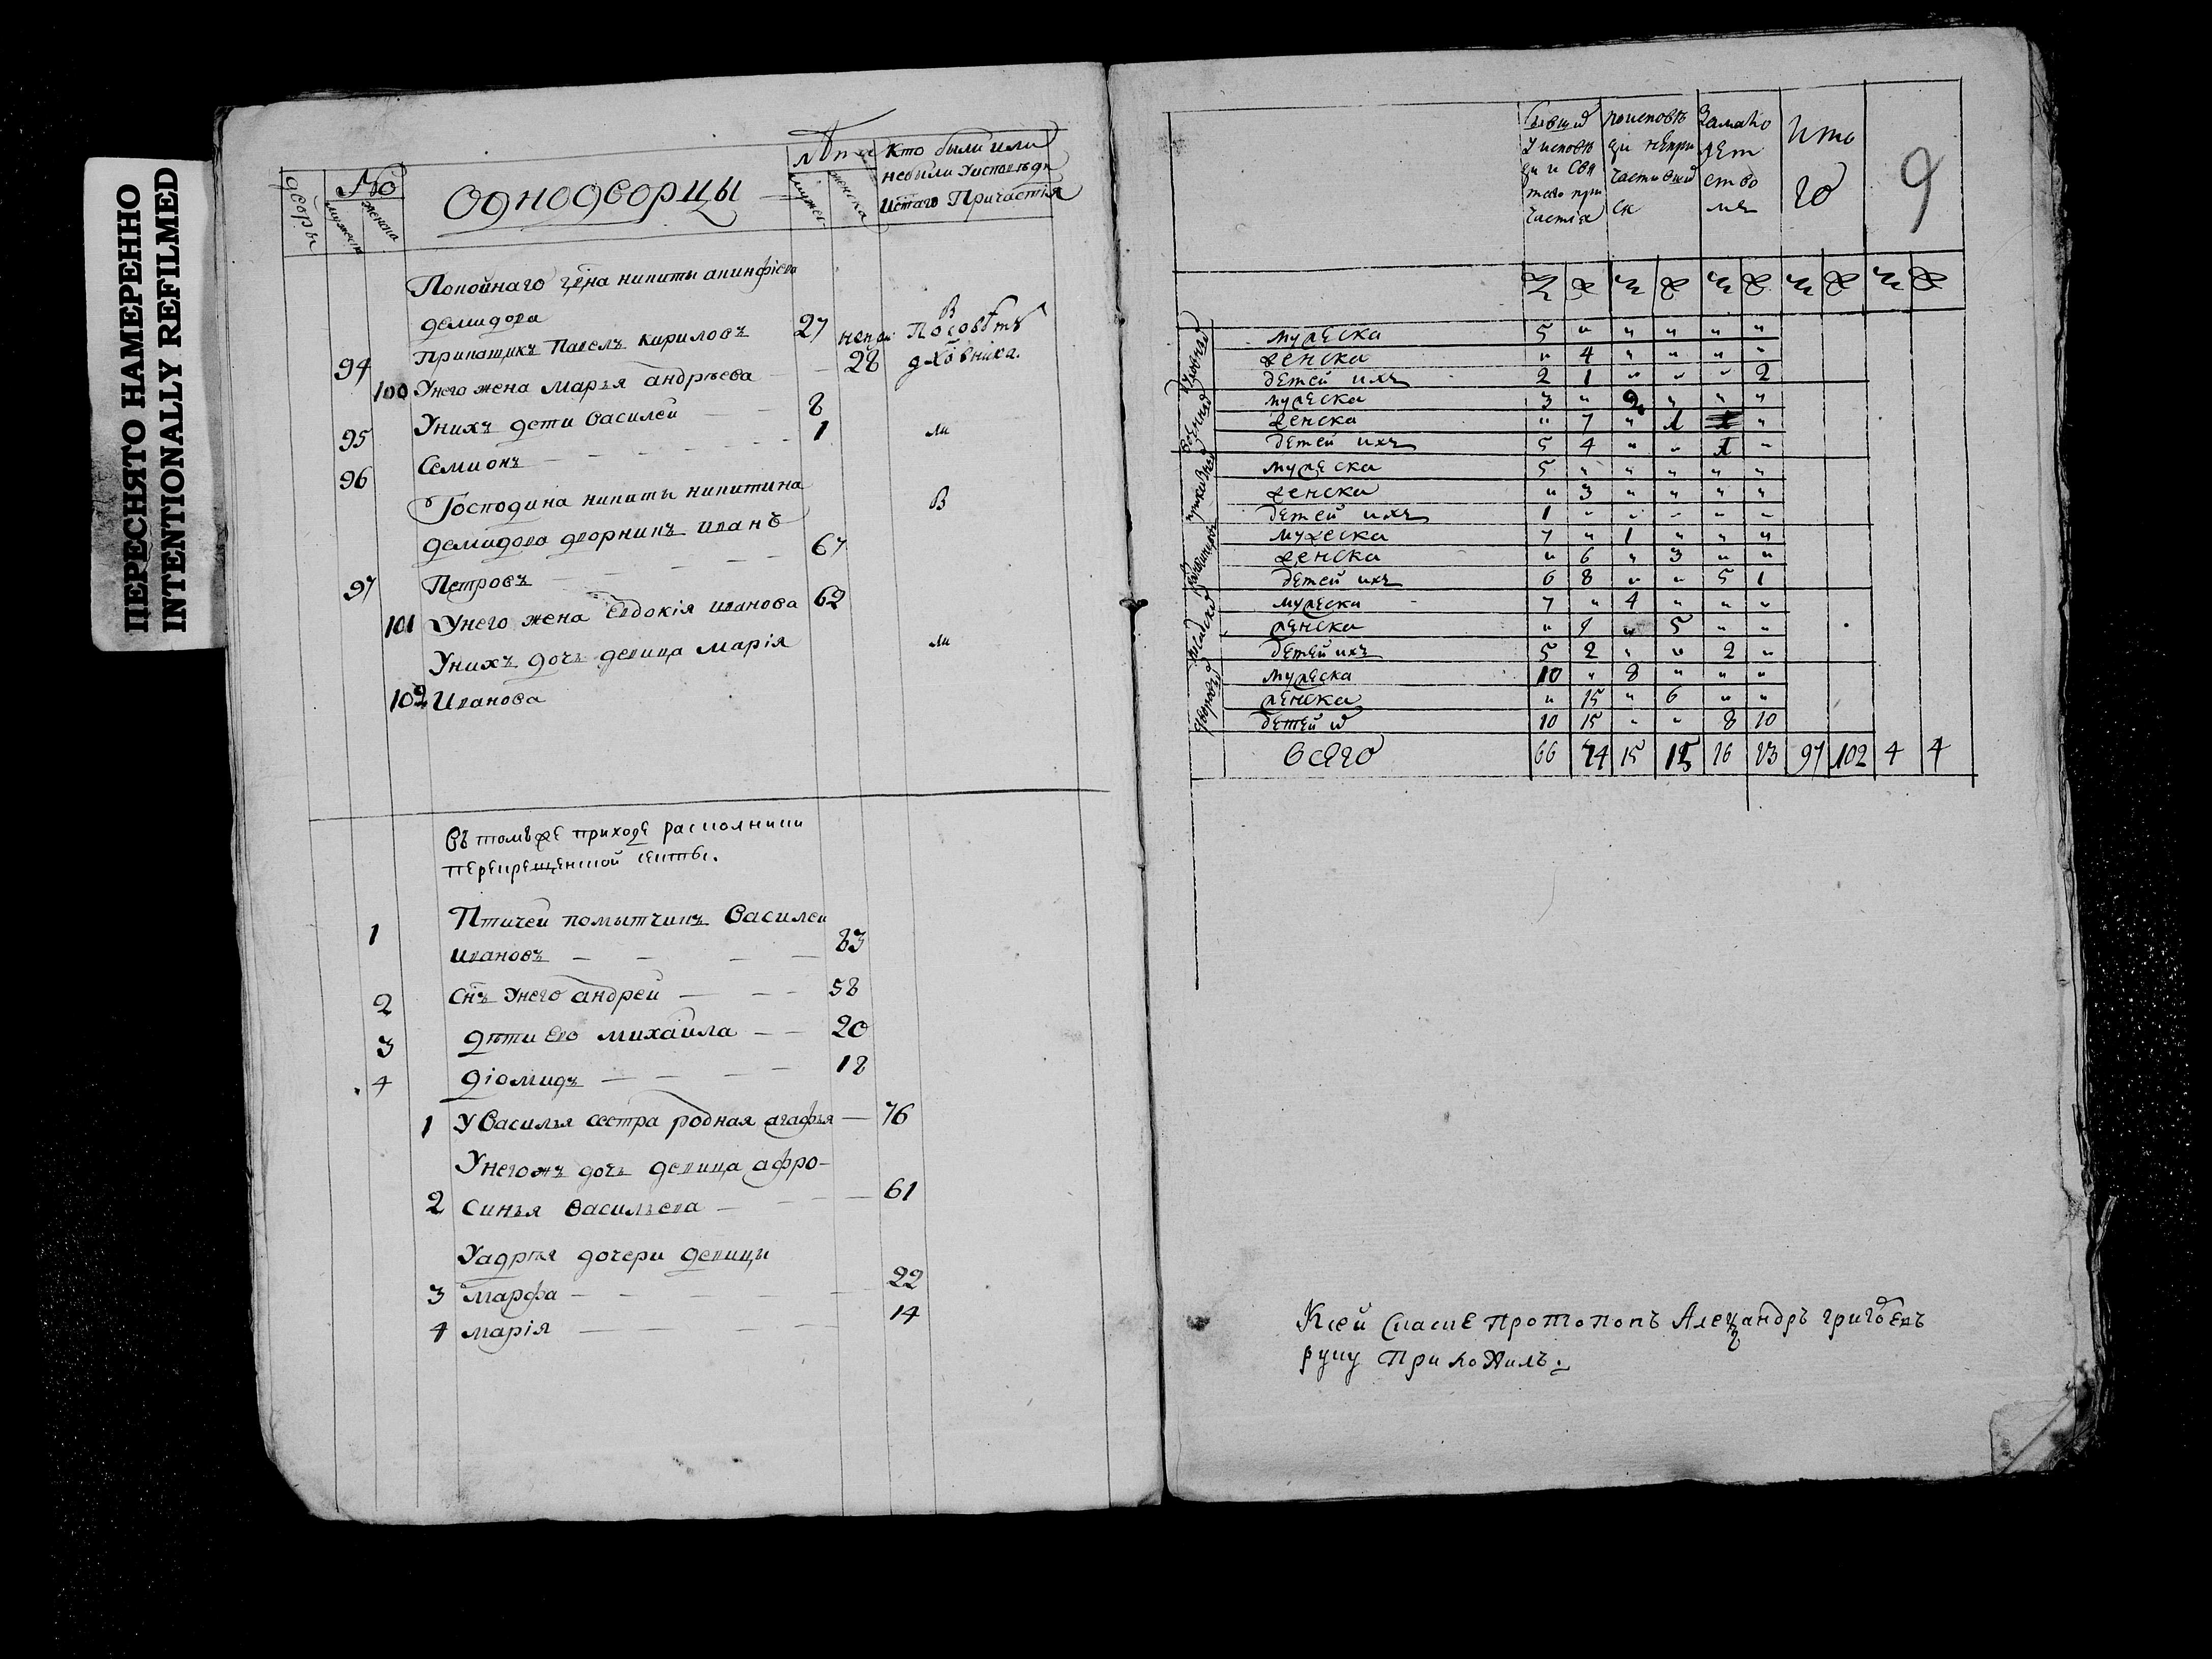 ПЕРЕСНЯТО НАМЕРЕННО
INTENTIONALLY REFILMED
дворы
No
мужеск
женска
Однодворцы
лѣта
мужес
женска
Кто были или
небыли Уисповѣди
истаго Причастія
Покойнаго гдна никиты акинфіева
демидова
94 Прикащикъ Павелъ Кириловъ 27
В
Посовѣтѣ
100 Унего жена Марья андрѣева — 28 дхо́вника.
95 Унихъ дети Василей — — 8
96 Семионъ — — — 1 ми
Господина никиты никитина В
демидова дворникъ иванъ
97 Петровъ — — — 67
101 Унего жена Евдокія иванова 62
Унихъ дочь девица марія ми
102 Иванова
Въ томъже приходе расколники
перекрещенской секты.
1 Птичей помытчикъ Василей
ивановъ — — — — 83
2 Снъ Унего андрей — — — 58
3 дѣти Его михайла — — 20
4 діомидъ — — — — 18
1 У Василья сестра родная агафья — 76
Унегожъ дочь девица афро-
2 синья Васильева — — — 61
Уадрѣя дочери девицы
3 марфа — — — — — 22
4 марія — — — — 14
бывши
У исповѣ
ди и Свя
таго при
частія
поисповѣ
ди непри
частивши
ся
Замало
лет
ство
мъ
Ито
го
9
м ж м ж м ж м ж м ж
мужеска 5 " " " " "
женска " 4 " " " "
детей ихъ 2 1 " " " 2
мужеска 3 " 2 " " "
женска " 7 " 1 "
детей ихъ 5 4 " " 1 "
мужеска 5 " " " " "
женска " 3 " " " "
детей ихъ 1 " " " " "
мужеска 7 " 1 " " "
женска " 6 " 3 " "
детей ихъ 6 8 " " 5 1
мужеска 7 " 4 " " "
женска " 9 " 5 " "
детей ихъ 5 2 " " 2 "
дворовы
мужеска 10 " 8 " " "
женска " 15 " 6 " "
детей и 10 15 " " 8 10
всего 66 74 15 15 16 13 97 102 4 4
Ксей Списке протопопъ Алеѯандръ григоревъ
руку приложилъ.